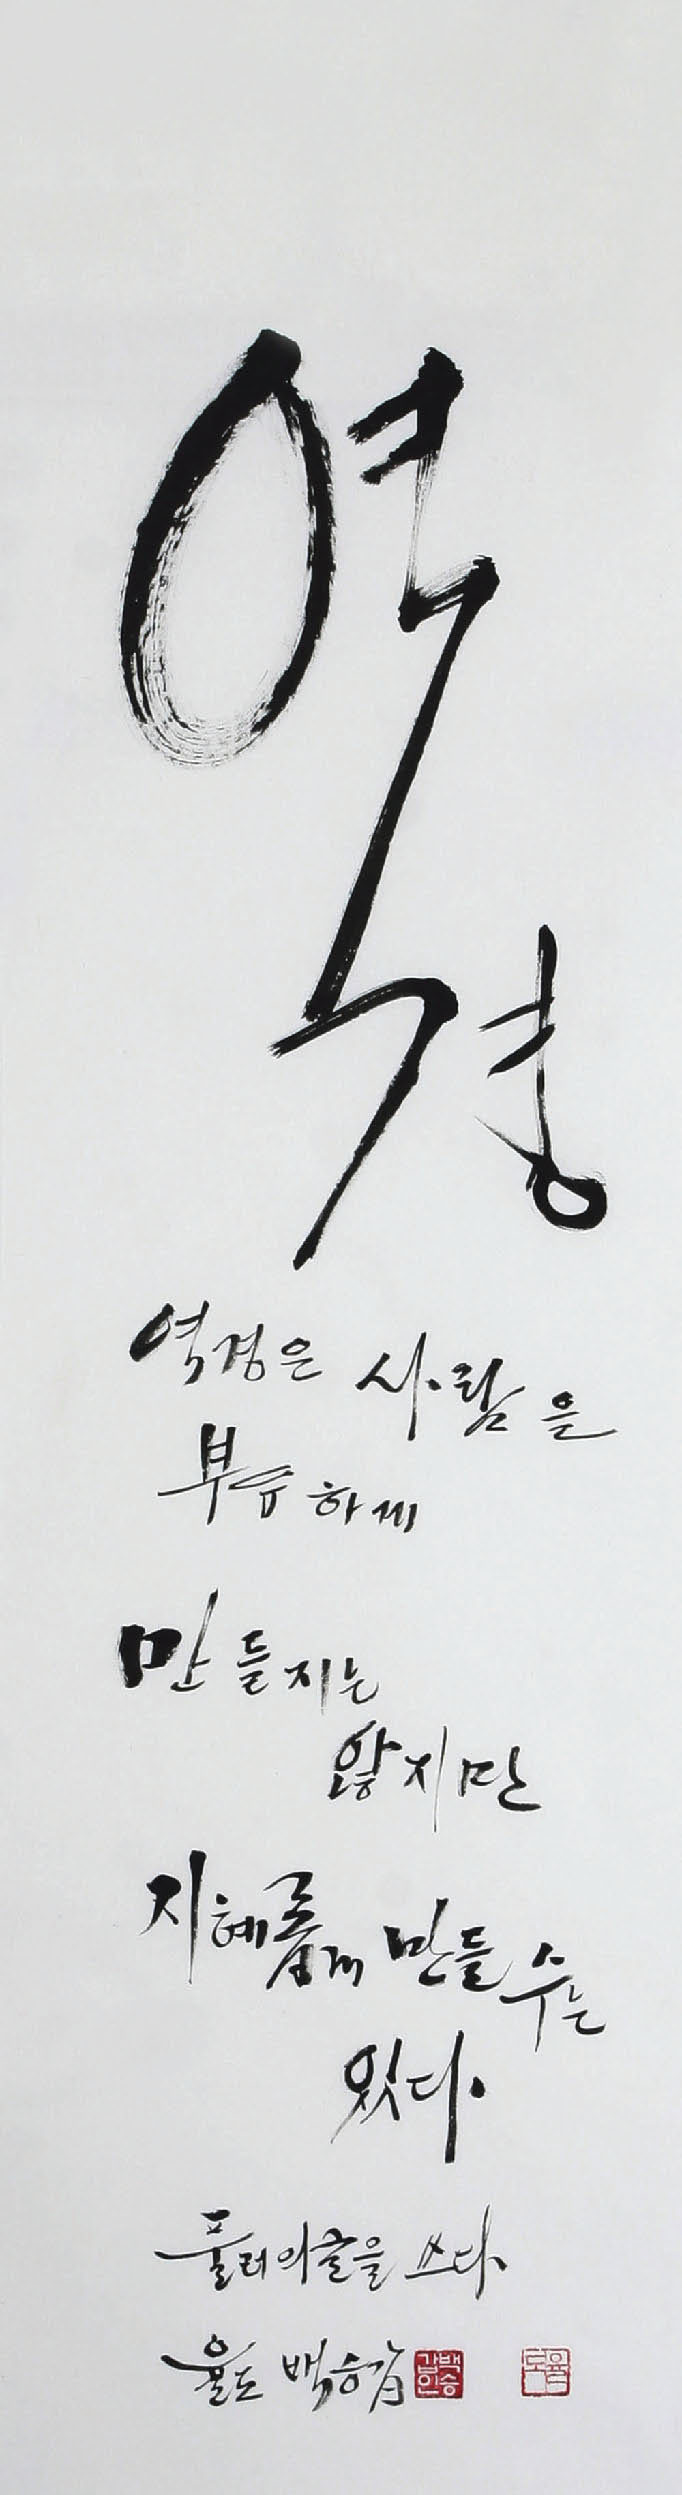 역경
역경은 사람을
부유하게
만들지는
않지만
지혜롭게 만들 수는
있다
풀러의 글을 쓰다
율도 백승갑
백승갑인
율도